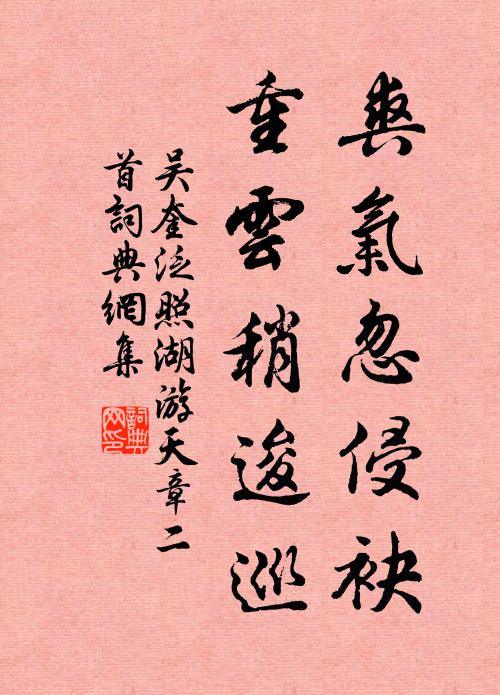 爽氣忽侵袂
重雲稍逡巡
吴奎泛照湖游天章二
首詞典網集
詞典
网印